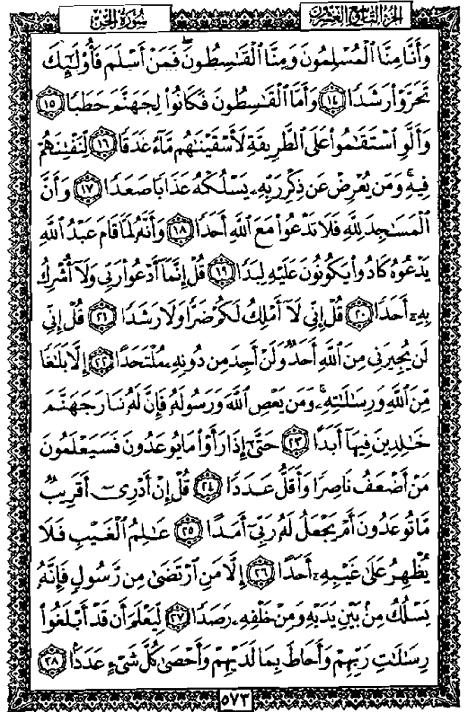 سُورَةُ الْجِنِّ
الجُزءُ التَّاسِعُ وَالعِشْرُونَ
وَأَنَّا مِنَّا ٱلْمُسْلِمُونَ وَمِنَّا ٱلْقَٰسِطُونَۖ فَمَنْ أَسْلَمَ فَأُو۟لَٰٓئِكَ
تَحَرَّوْا۟ رَشَدًا ١٤ وَأَمَّا ٱلْقَٰسِطُونَ فَكَانُوا۟ لِجَهَنَّمَ حَطَبًا ١٥
وَأَلَّوِ ٱسْتَقَٰمُوا۟ عَلَى ٱلطَّرِيقَةِ لَأَسْقَيْنَٰهُم مَّآءً غَدَقًا ١٦ لِّنَفْتِنَهُمْ
فِيهِۚ وَمَن يُعْرِضْ عَن ذِكْرِ رَبِّهِۦ يَسْلُكْهُ عَذَابًا صَعَدًا ١٧ وَأَنَّ
ٱلْمَسَٰجِدَ لِلَّهِ فَلَا تَدْعُوا۟ مَعَ ٱللَّهِ أَحَدًا ١٨ وَأَنَّهُۥ لَمَّا قَامَ عَبْدُ ٱللَّهِ
يَدْعُوهُ كَادُوا۟ يَكُونُونَ عَلَيْهِ لِبَدًا ١٩ قُلْ إِنَّمَآ أَدْعُوا۟ رَبِّى وَلَآ أُشْرِكُ
بِهِۦٓ أَحَدًا ٢٠ قُلْ إِنِّى لَآ أَمْلِكُ لَكُمْ ضَرًّا وَلَا رَشَدًا ٢١ قُلْ إِنِّى
لَن يُجِيرَنِى مِنَ ٱللَّهِ أَحَدٌ وَلَنْ أَجِدَ مِن دُونِهِۦ مُلْتَحَدًا ٢٢ إِلَّا بَلَٰغًا
مِّنَ ٱللَّهِ وَرِسَٰلَٰتِهِۦۚ وَمَن يَعْصِ ٱللَّهَ وَرَسُولَهُۥ فَإِنَّ لَهُۥ نَارَ جَهَنَّمَ
خَٰلِدِينَ فِيهَآ أَبَدًا ٢٣ حَتَّىٰٓ إِذَا رَأَوْا۟ مَا يُوعَدُونَ فَسَيَعْلَمُونَ
مَنْ أَضْعَفُ نَاصِرًا وَأَقَلُّ عَدَدًا ٢٤ قُلْ إِنْ أَدْرِىٓ أَقَرِيبٌ
مَّا تُوعَدُونَ أَمْ يَجْعَلُ لَهُۥ رَبِّىٓ أَمَدًا ٢٥ عَٰلِمُ ٱلْغَيْبِ فَلَا
يُظْهِرُ عَلَىٰ غَيْبِهِۦٓ أَحَدًا ٢٦ إِلَّا مَنِ ٱرْتَضَىٰ مِن رَّسُولٍ فَإِنَّهُۥ
يَسْلُكُ مِنۢ بَيْنِ يَدَيْهِ وَمِنْ خَلْفِهِۦ رَصَدًا ٢٧ لِّيَعْلَمَ أَن قَدْ أَبْلَغُوا۟
رِسَٰلَٰتِ رَبِّهِمْ وَأَحَاطَ بِمَا لَدَيْهِمْ وَأَحْصَىٰ كُلَّ شَىْءٍ عَدَدًۢا ٢٨
٥٧٣